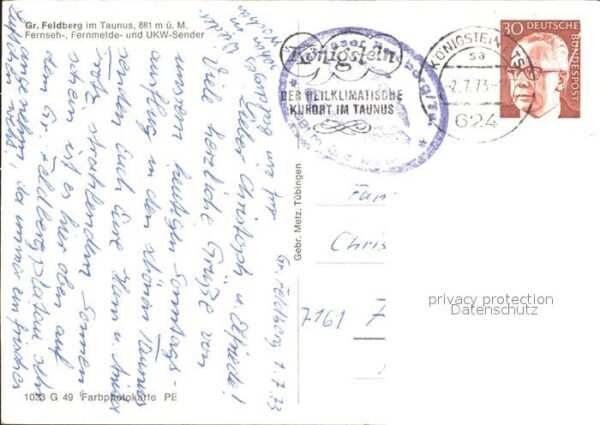 Gr. Feldberg im Taunus, 881 m ü. M.
Fernseh-, Fernmelde- und UKW-Sender
Gr. Feldberg 1.7.73
Lieber Christoph u. Elfriede!
Viele herzliche Grüße von
unserem heutigen Sonntags-
ausflug in den schönen Taunus
senden Euch Eure Hern u. 
Trotz strahlendem Sonnen-
schein ist es hier oben auf
dem Gr. Feldbergplateau sehr
angenehm, da immer ein frisches
Lüftchen weht.
1023 G 49 Farbphotokarte PE
Gebr. Metz, Tübingen
Königstein
DER HEILKLIMATISCHE
KURORT IM TAUNUS
KÖNIGSTEIN, TS
sa
-2.7.73-
624
30
DEUTSCHE
BUNDESPOST
Fam
Chris
7161
privacy protection
Datenschutz